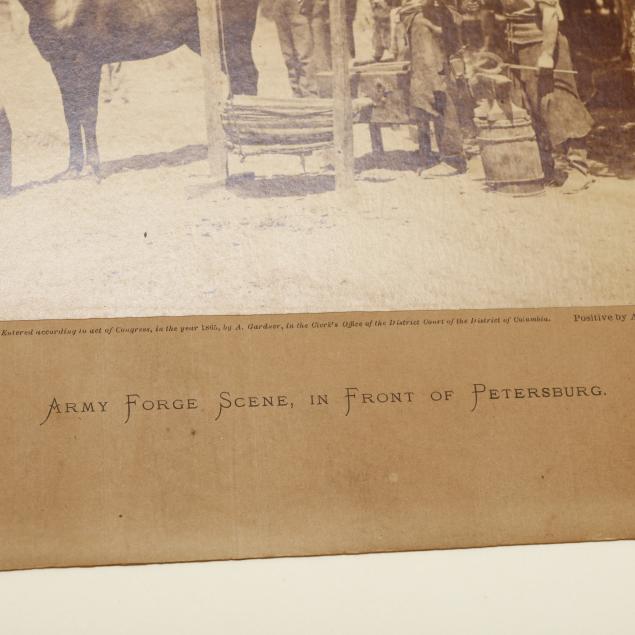 Entered according to act of Congress, in the year 1865, by A. Gardner, in the Clerk's Office of the District Court of the District of Columbia. Positive by A
ARMY FORGE SCENE, IN FRONT OF PETERSBURG.